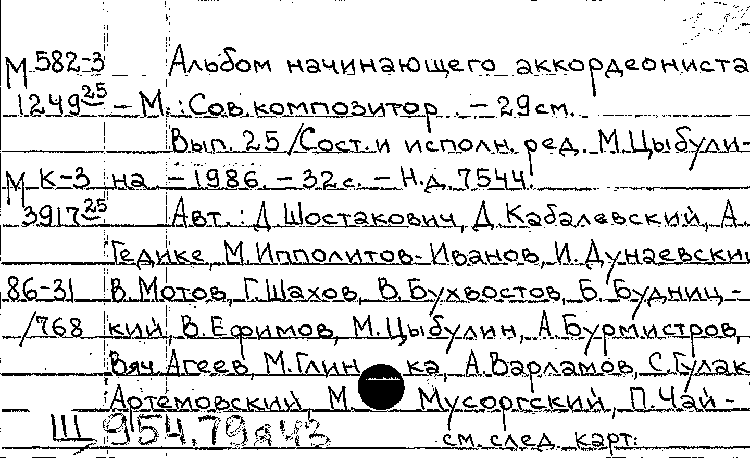 М 582-3 Альбом начинающего аккордеониста
1249 25 – М.: Сов. композитор. – 29 см.
Вып. 25 / Сост. и исполн. ред. М. Цыбули-
М К-3 на – 1986. – 32 с. – Н.д. 7544.
3917 25 Авт.: Д. Шостакович, Д. Кабалевский, А.
Гедике, М. Ипполитов-Иванов, И. Дунаевский
86-31 В. Мотов, Г. Шахов, В. Бухвостов, Б. Будниц-
/768 кий, В. Ефимов, М. Цыбулин, А. Бурмистров,
Вяч. Агеев, М. Глинка, А. Варламов, С. Гулак
Артемовский, М. Мусоргский, П. Чай-
Ш 954.79я43 см. след. карт.